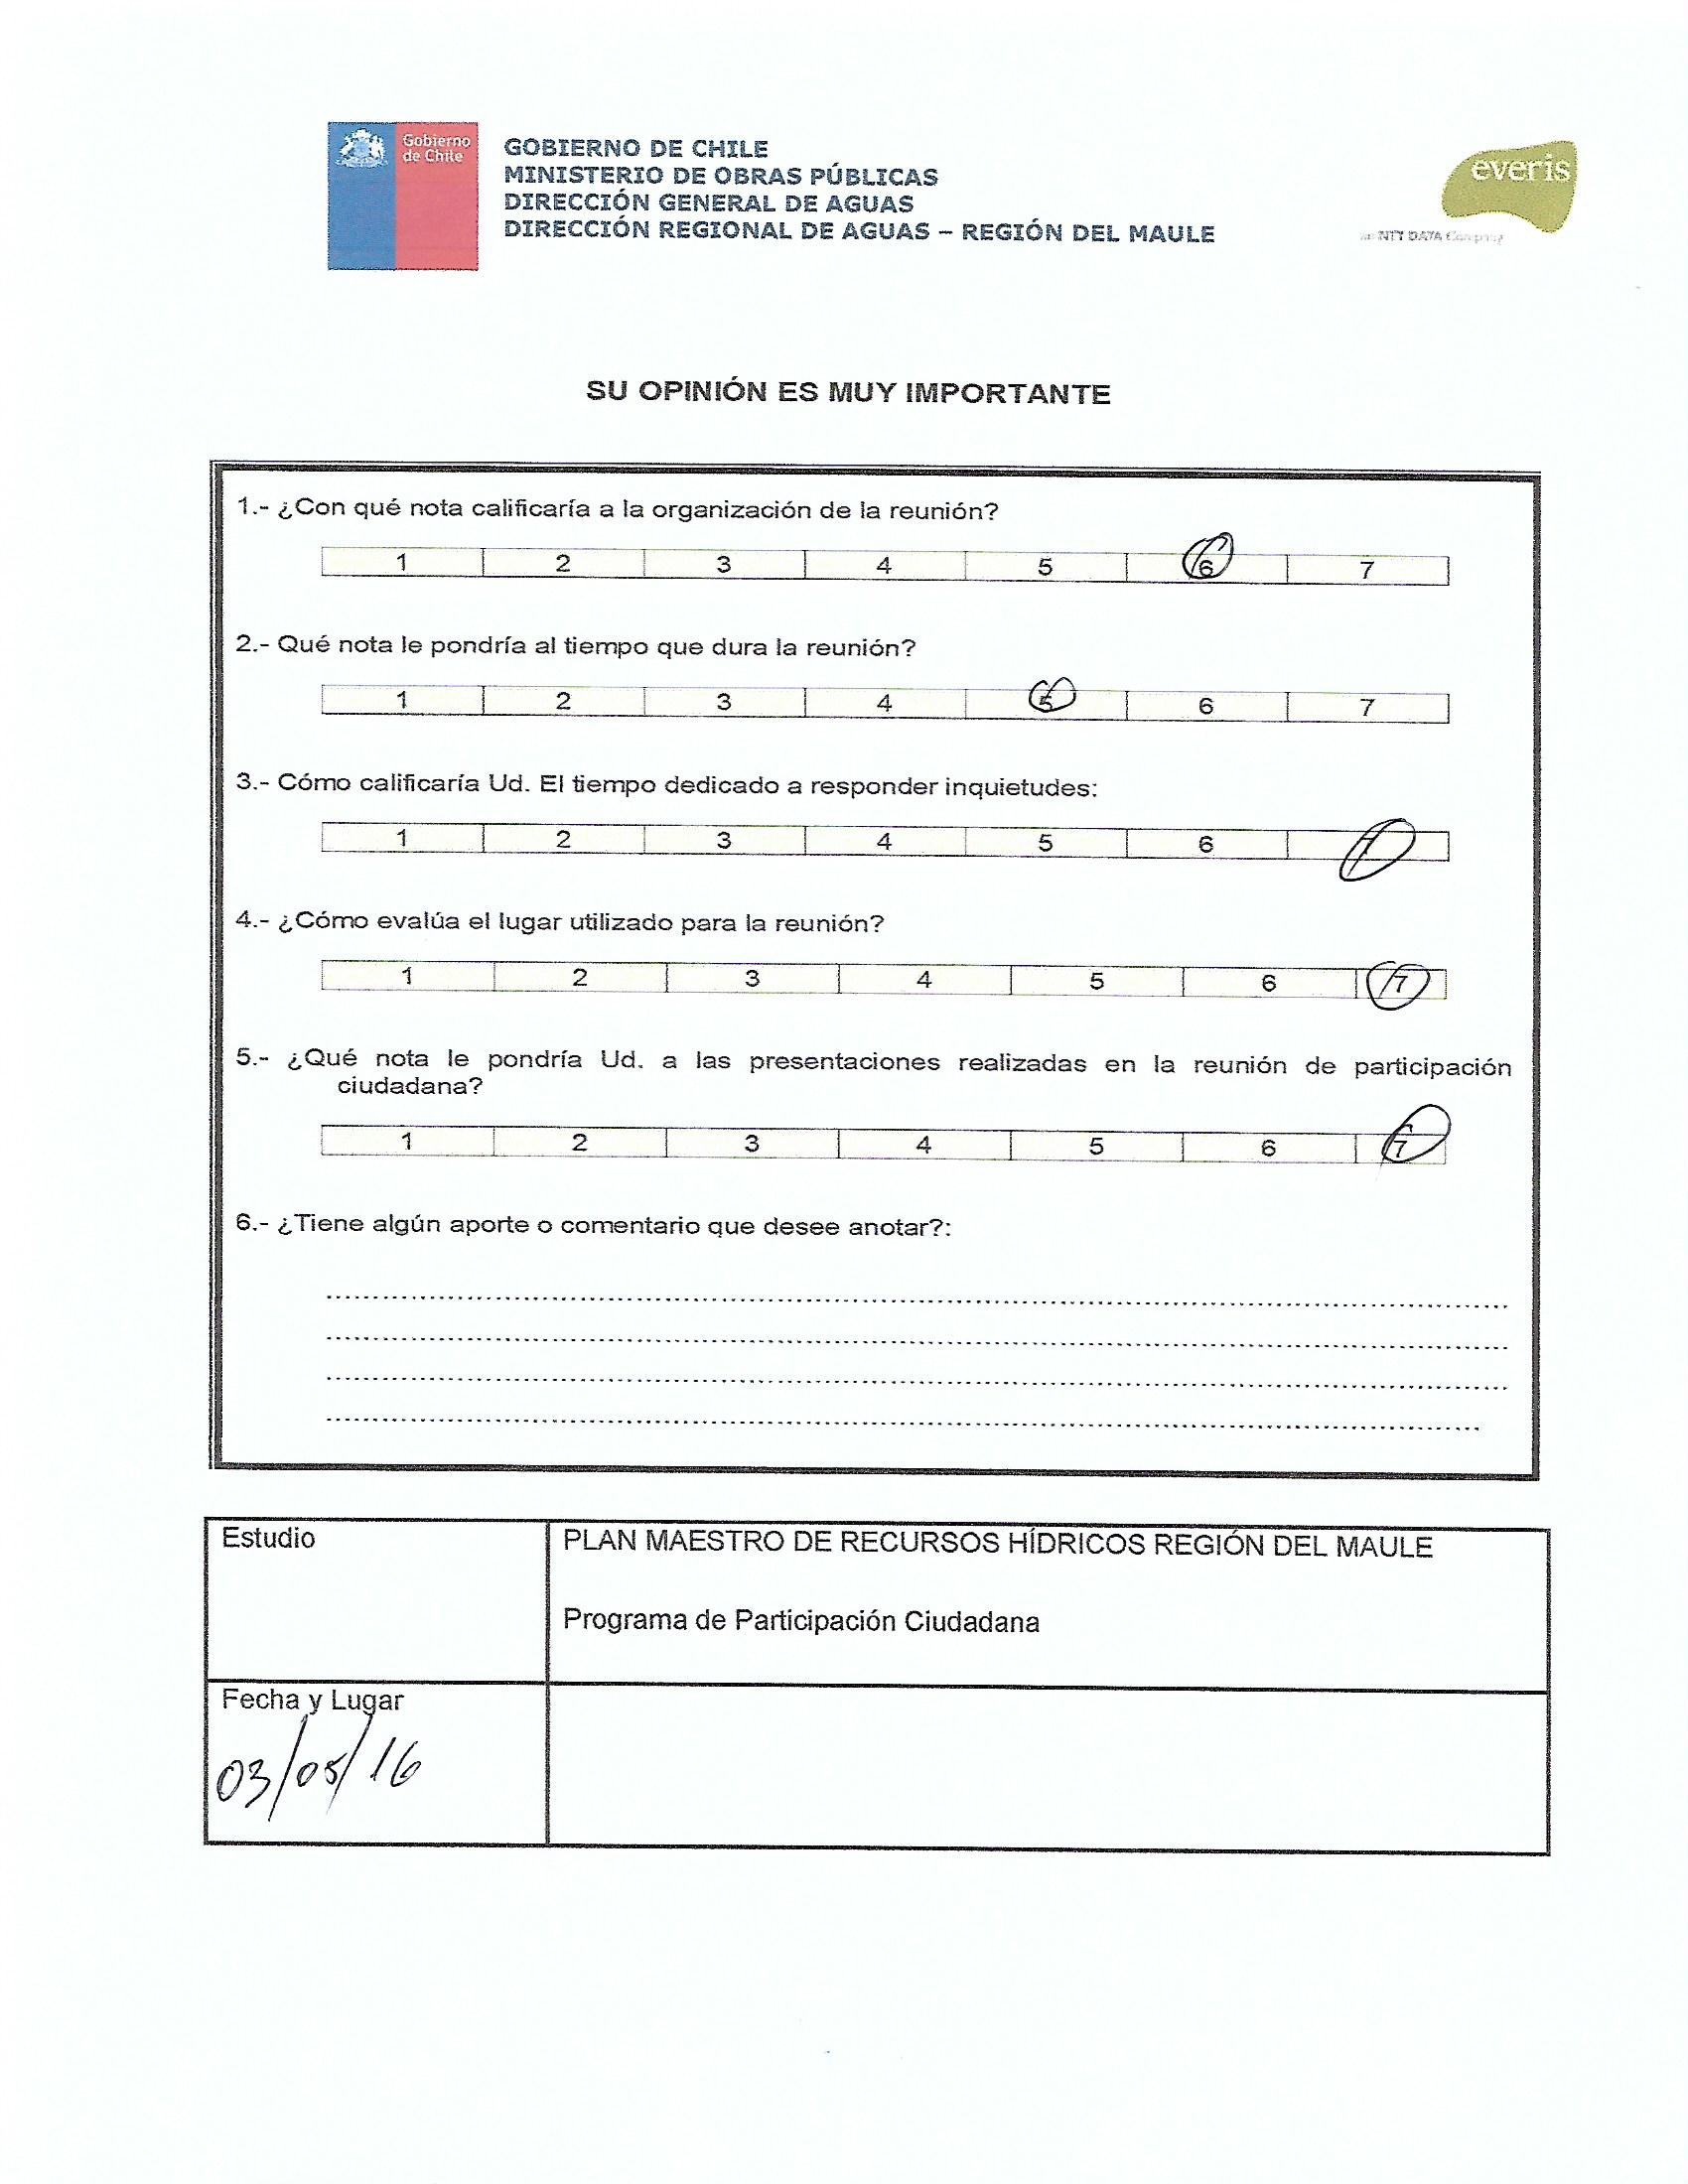 Gobierno
de Chile
GOBIERNO DE CHILE
MINISTERIO DE OBRAS PÚBLICAS
DIRECCIÓN GENERAL DE AGUAS
DIRECCIÓN REGIONAL DE AGUAS – REGIÓN DEL MAULE
everis
an NTT DATA Company
SU OPINIÓN ES MUY IMPORTANTE
1.- ¿Con qué nota calificaría a la organización de la reunión?
1 2 3 4 5 6 7
2.- Qué nota le pondría al tiempo que dura la reunión?
1 2 3 4 5 6 7
3.- Cómo calificaría Ud. El tiempo dedicado a responder inquietudes:
1 2 3 4 5 6 7
4.- ¿Cómo evalúa el lugar utilizado para la reunión?
1 2 3 4 5 6 7
5.- ¿Qué nota le pondría Ud. a las presentaciones realizadas en la reunión de participación
ciudadana?
1 2 3 4 5 6 7
6.- ¿Tiene algún aporte o comentario que desee anotar?:
Estudio
PLAN MAESTRO DE RECURSOS HÍDRICOS REGIÓN DEL MAULE
Programa de Participación Ciudadana
Fecha y Lugar
03/05/16